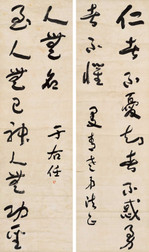 仁者不憂知者不惑勇
者不懼
至人無己神人無功聖
人無名
于右任